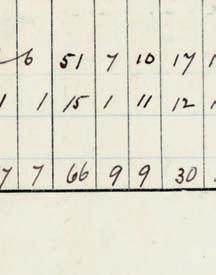 6 51 7 10 17
1 1 15 1 11 12
7 7 66 9 9 30